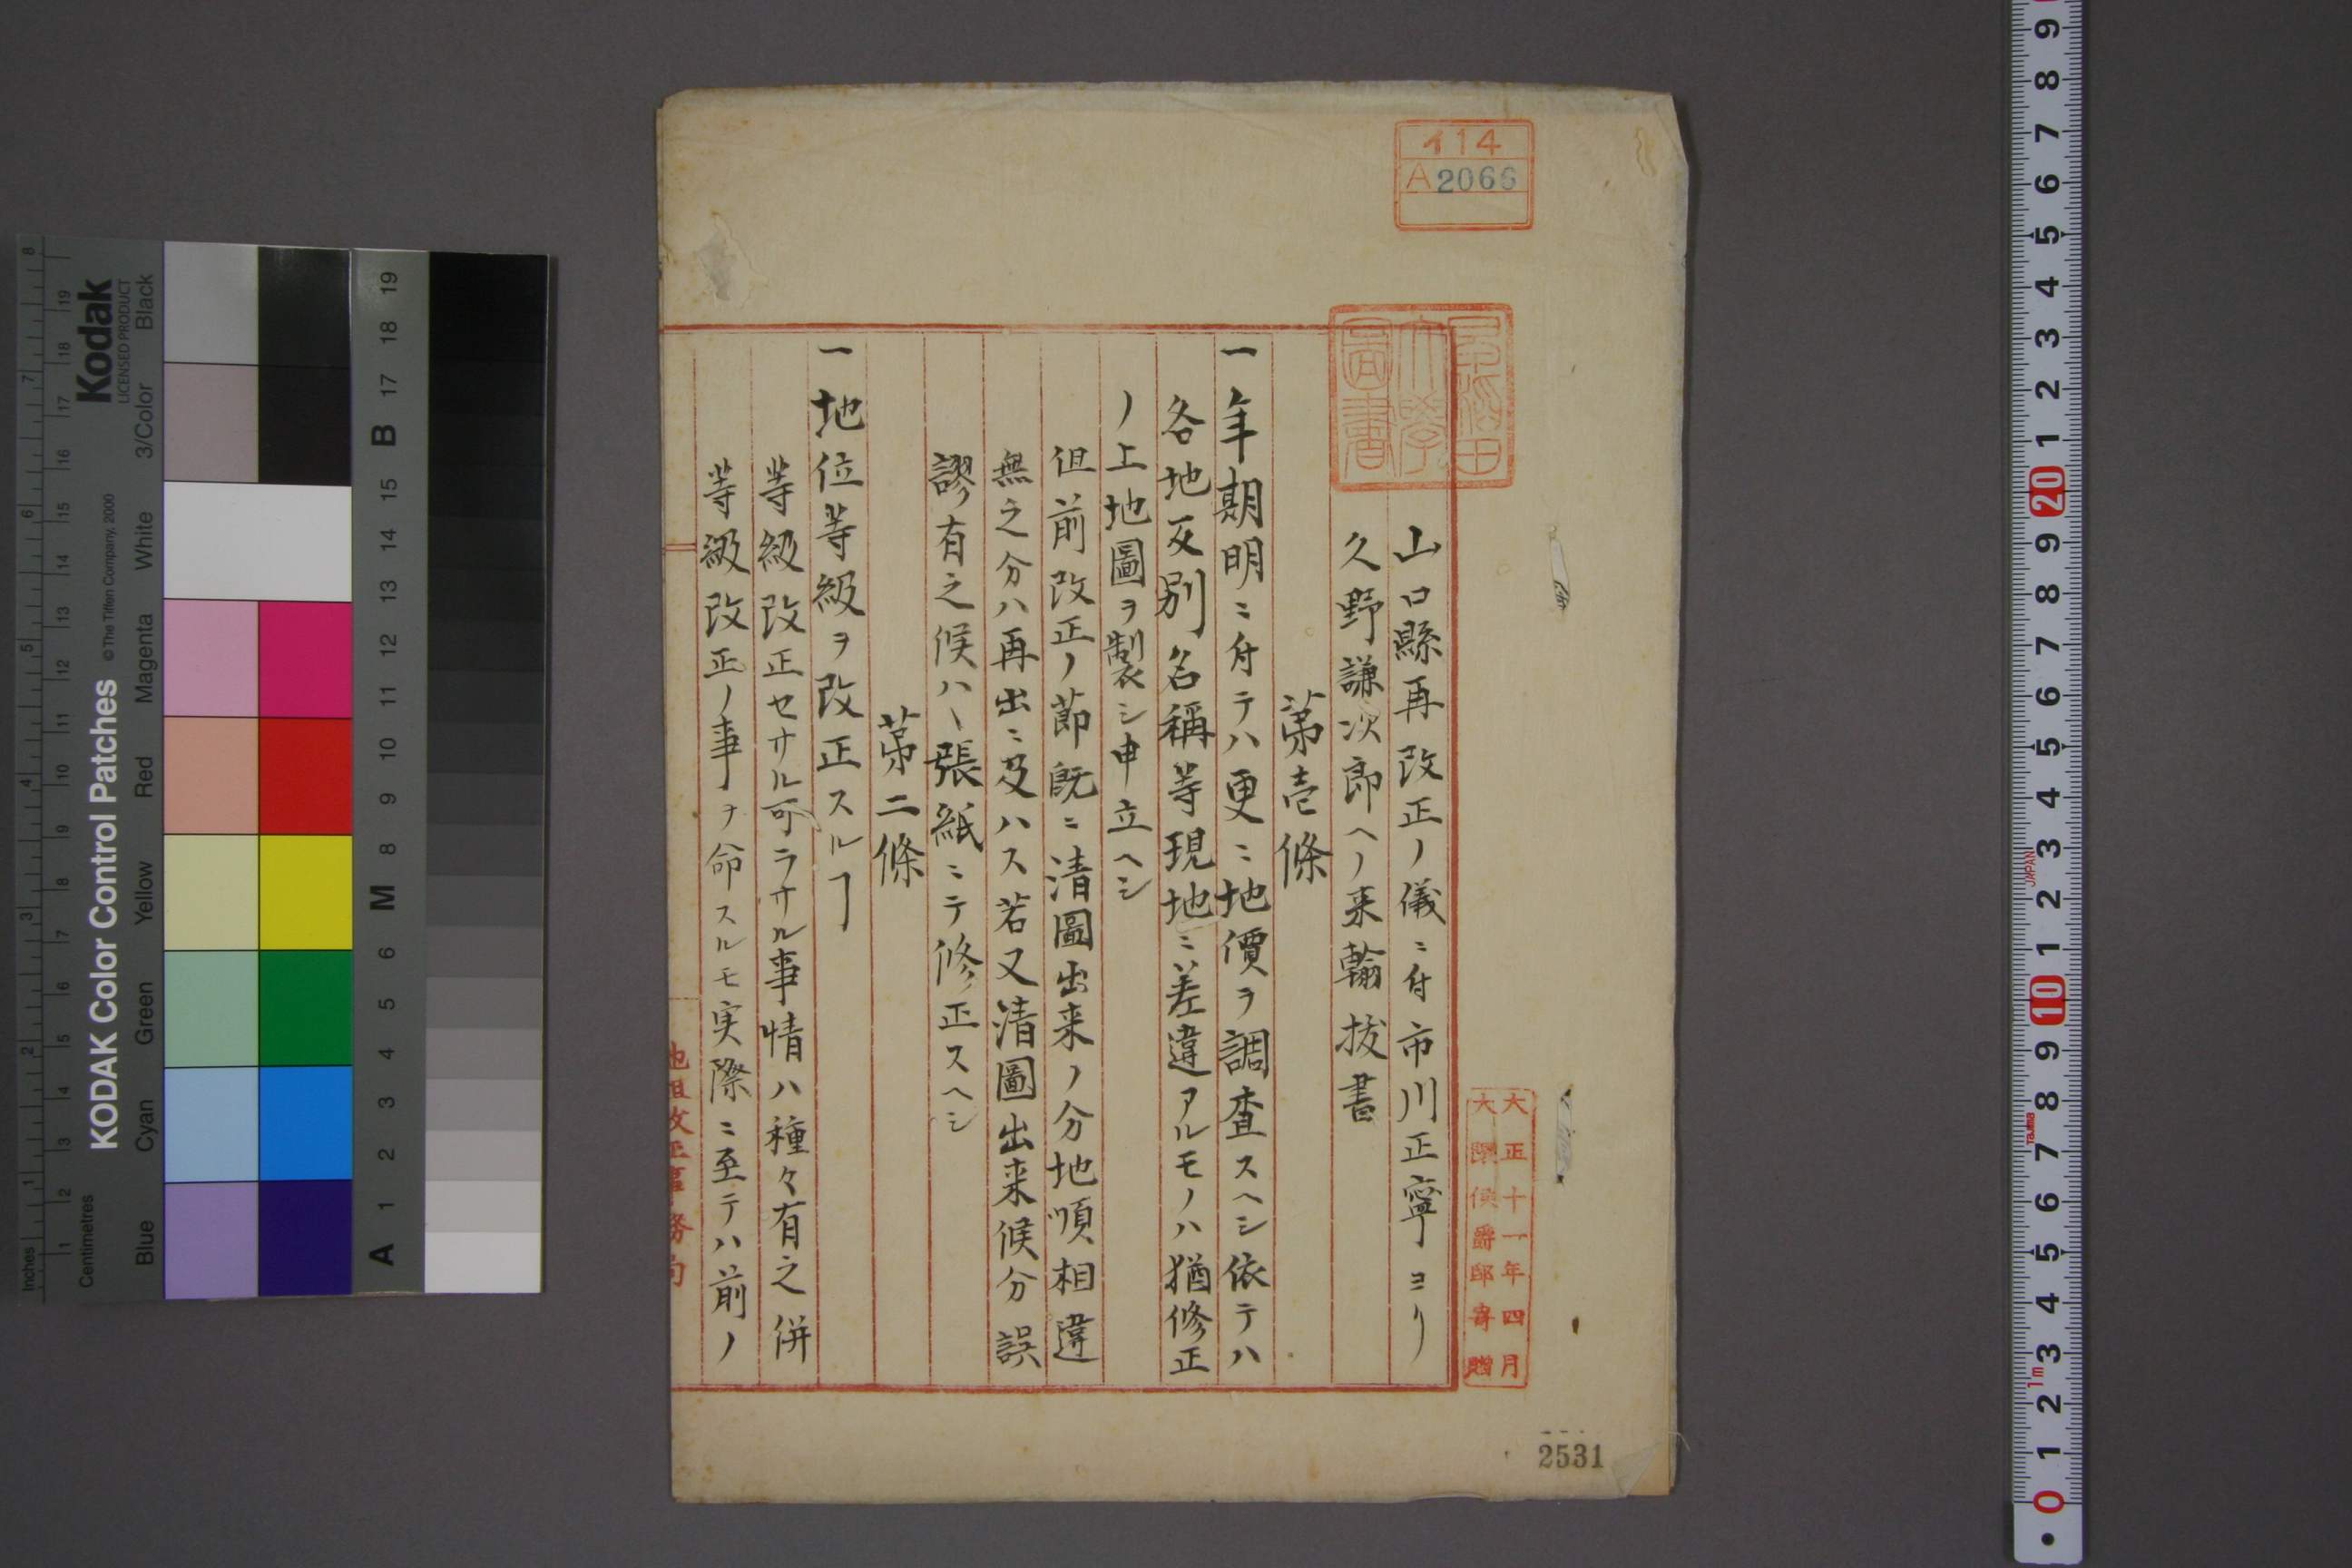 イ14
A2066
早稲田
大學
圖書
山口縣再改正ノ儀ニ付市川正寧ヨリ
久野謙次郎ヘノ来翰抜書
第壱條
一年期明ニ付テハ更ニ地價ヲ調査スヘシ依テハ
各地反別名稱等現地ニ差違アルモノハ猶修正
ノ上地圖ヲ製シ申立ヘシ
但前改正ノ節既ニ清圖出来ノ分地順相違
無之分ハ再出ニ及ハス若又清圖出来候分誤
謬有之候ハヽ張紙ニテ修正スヘシ
第二條
一地位等級ヲ改正スルヿ
等級改正セサル可ラサル事情ハ種々有之併
等級改正ノ事ヲ命スルモ実際ニ至テハ前ノ
地租改正事務局
大正十一年四月
大隈侯爵邸寄贈
2531
Kodak
LICENSED PRODUCT
KODAK Color Control Patches
©The Tiffen Company, 2000
Inches
Centimetres
Blue
Cyan
Green
Yellow
Red
Magenta
White
3/Color
Black
A 1 2 3 4 5 6 M 8 9 10 11 12 13 14 15 B 17 18 19
JAPAN
Tajima
1m